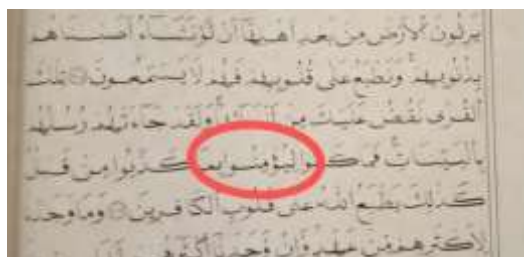 يَرِثُونَ ٱلْأَرْضَ مِنۢ بَعْدِ أَهْلِهَا أَن لَّوْ نَشَآءُ أَصَبْنَاهُم
بِذُنُوبِهِمْ وَنَطْبَعُ عَلَى قُلُوبِهِمْ فَهُمْ لَا يَسْمَعُونَ تِلْكَ
ٱلْقُرَى نَقُصُّ عَلَيْكَ مِنْ أَنۢبَآئِهَا وَلَقَدْ جَآءَتْهُمْ رُسُلُهُم
بِالْبَيِّنَاتِ فَمَا كَانُوا لِيُؤْمِنُوا بِمَا كَذَّبُوا مِن قَبْلُ
كَذَلِكَ يَطْبَعُ اللَّهُ عَلَى قُلُوبِ الْكَافِرِينَ وَمَا وَجَدْنَا
لِأَكْثَرِهِم مِّنْ عَهْدٍ وَإِن وَجَدْنَا أَكْثَرَهُمْ